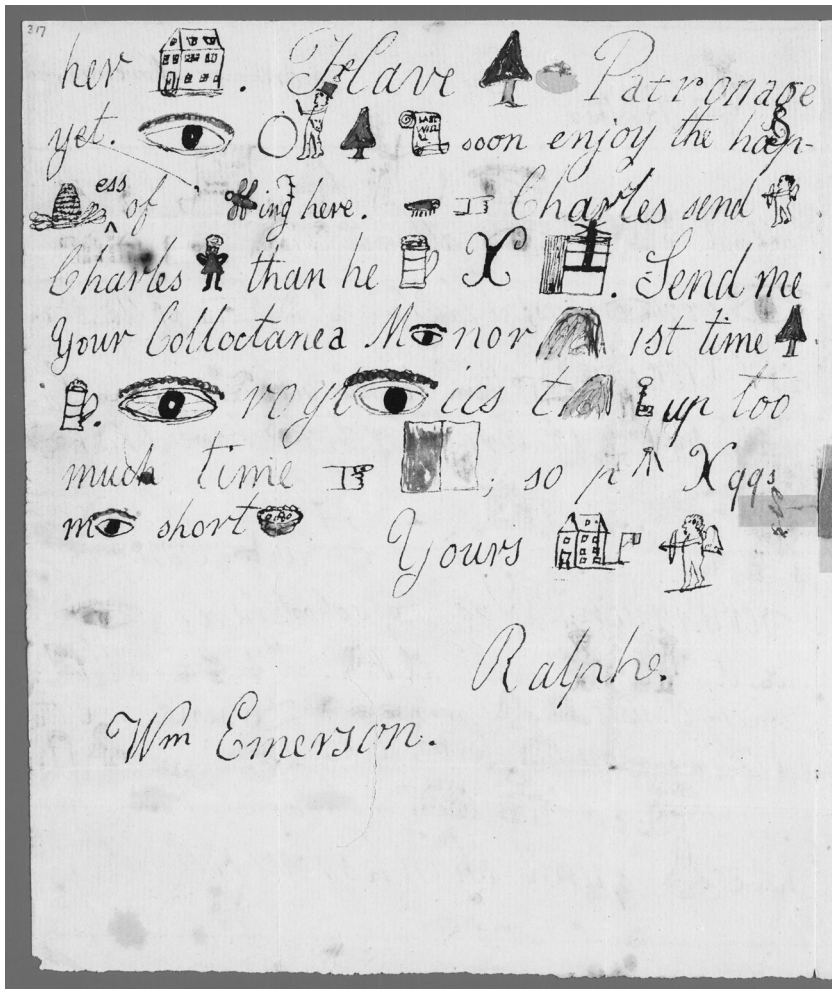 317
her . Have Patronage
yet. LAST WILL soon enjoy the hap-
ess of ing here. Charles send
Charles than he X . Send me
your Colloctanea M nor 1st time
. rogl ics t up too
much time ; so p X qqs
m short
Yours
Ralph.
Wm Emerson.